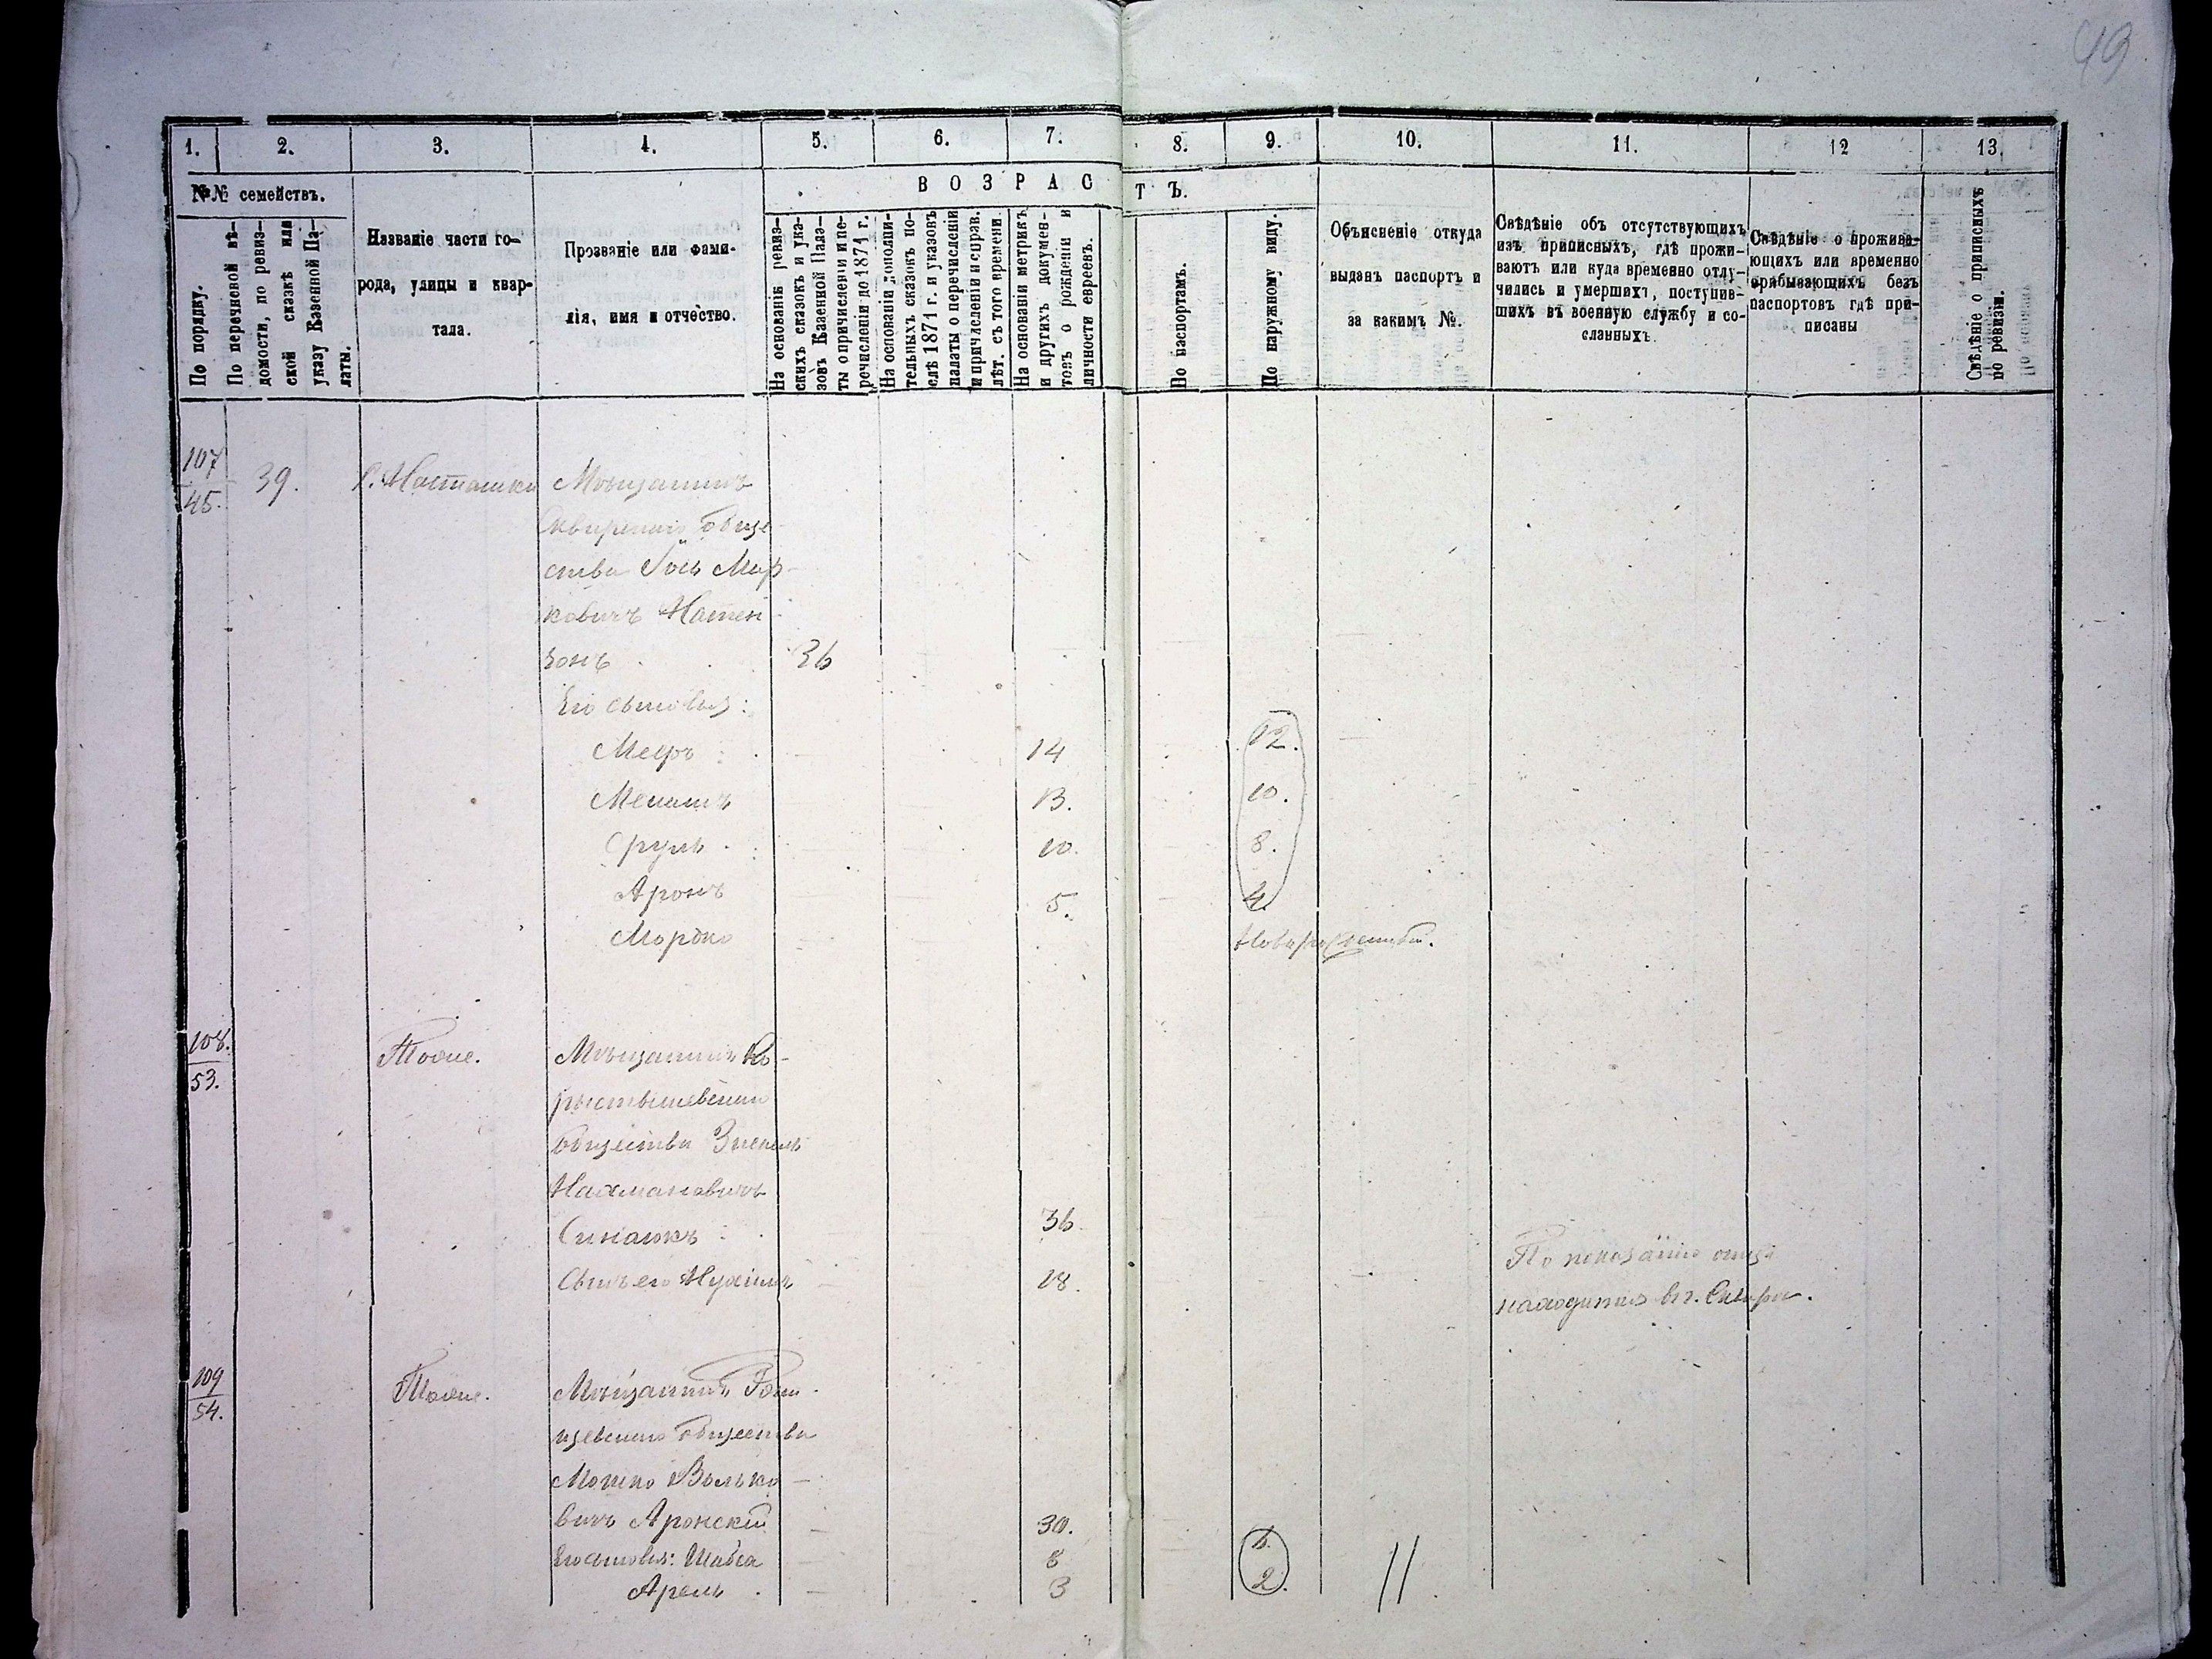 49
1. 2. 3. 4. 5. 6. 7. 8. 9. 10. 11. 12 13.
№№ семействъ.
По порядку.
По перечневой вѣ-
домости, по ревиз-
ской сказкѣ или
указу Казенной Па-
латы.
Названіе части го-
рода, улицы и квар-
тала.
Прозваніе или фами-
лія, имя и отчество.
ВОЗРАСТЪ.
На основаніи ревиз-
скихъ сказокъ и ука-
зовъ Казенной Пала-
ты о причисленіи и пе-
речисленіи до 1871 г.
На основаніи дополни-
тельныхъ сказокъ по-
слѣ 1871 г. и указовъ
палаты о перечисленіи
и причисленіи и справ.
лѣт. съ того времени.
На основаніи метрикъ
и другихъ докумен-
товъ о рожденіи и
личности евреевъ.
По паспортамъ.
По наружному виду.
Объясненіе откуда
выданъ паспортъ и
за какимъ №.
Свѣдѣніе объ отсутствующихъ
изъ приписныхъ, гдѣ прожи-
ваютъ или куда временно отлу-
чились и умершихъ, поступив-
шихъ въ военную службу и со-
сланныхъ.
Свѣдѣніе о прожива-
ющихъ или временно
прибывающихъ безъ
паспортовъ гдѣ при-
писаны
Свѣдѣніе о приписныхъ
по ревизіи.
107
45.
39. С. Наташки Мѣщанинъ
Сквирскаго обще-
ства Іось Мар-
ковичъ Натен-
зонъ 36
Его сыновья:
Мееръ 14 12.
Менашъ 13. 10.
Сруль 10. 8.
Аронъ 5. 4.
Мордко Новорожденный.
108.
53.
Тоже. Мѣщанинъ Ко-
ростышевскаго
общества
Нахмановичъ
36.
Сынъ его 18.
По показанію отца
находится въ г. Сквирѣ.
109
54.
Тоже. Мѣщанинъ
общества
Мошко Волько-
вичъ Аронскій 30.
Его сыновья: Шабса 8 6.
Арель 3 2. //